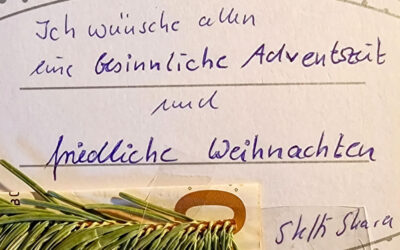 Ich wünsche allen
eine besinnliche Adventszeit
und
friedliche Weihnachten